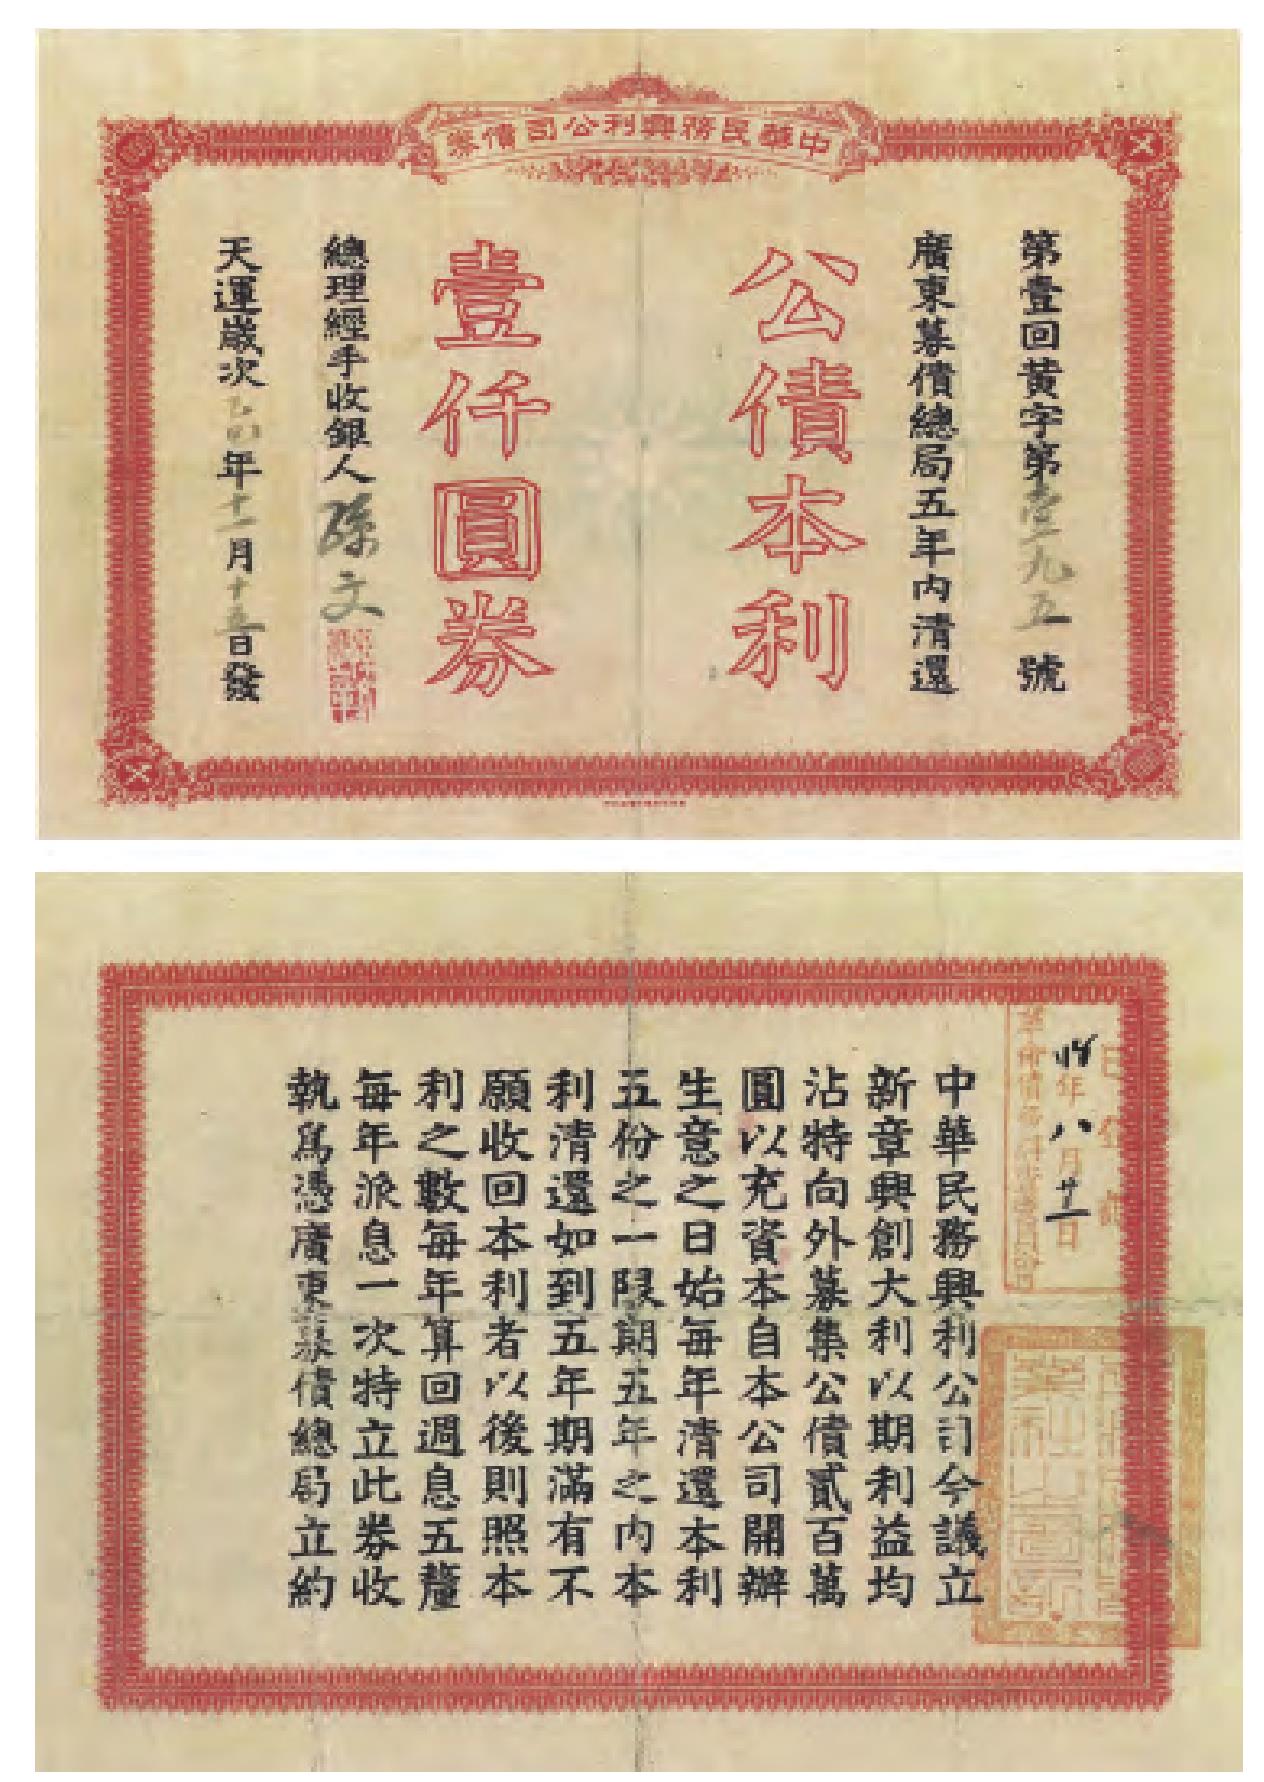 中華民務興利公司債票
第壹回黃字第壹九五號
廣東募債總局五年內清還
公債本利
壹仟圓券
總理經手收銀人孫文
天運歲次乙巳年十一月十五日發
已登記
年八月廿三日
中華民務興利公司今議立
新章興創大利以期利益均
沾特向外募集公債貳百萬
圓以充資本自本公司開辦
生意之日始每年清還本利
五份之一限期五年之內本
利清還如到五年期滿有不
願收回本利者以後則照本
利之數每年算回週息五釐
每年派息一次特立此券收
執爲憑廣東募債總局立約